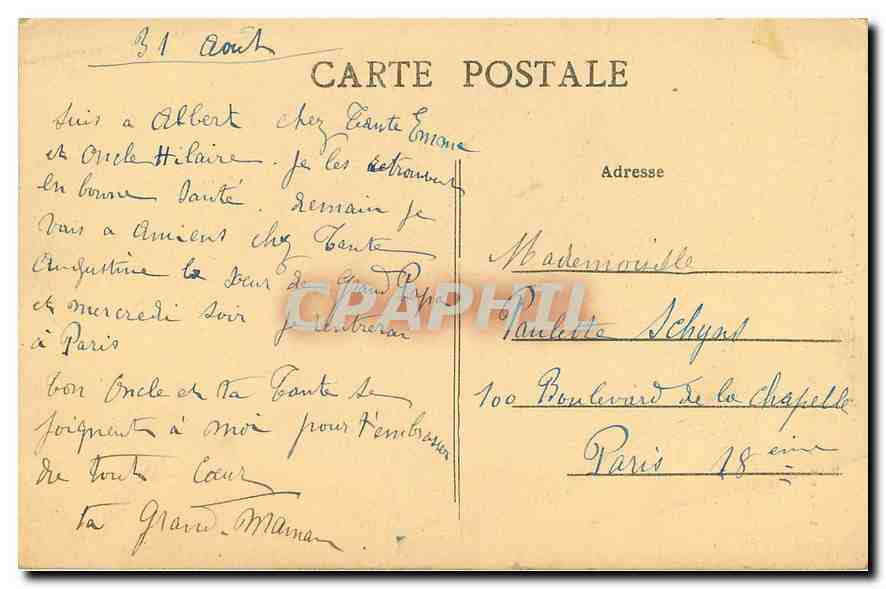 31 Août
CARTE POSTALE
suis a Albert chez Tante Emma
et Oncle Hilaire. Je les retrouvent
en bonne santé. demain je
vais a Amiens chez Tante
Augustine la sœur de Grand Papa
et mercredi soir je rentrerai
à Paris
ton Oncle et ta Tante se
joignent à moi pour t'embrasser
de tout Cœur
ta Grand-Maman.
Adresse
Mademoiselle
Paulette Schyns
100 Boulevard de la Chapelle
Paris 18 ème
CPAPHIL